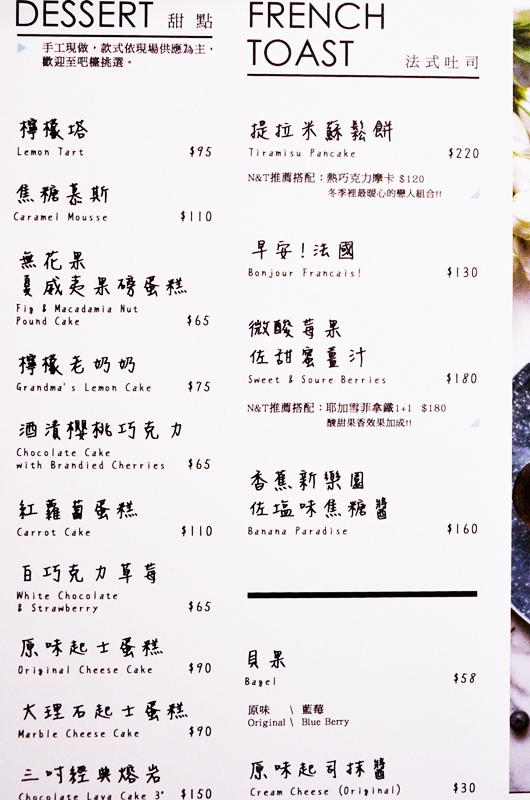 DESSERT 甜 點
手工現做，款式依現場供應為主，
歡迎至吧檯挑選。
檸檬塔
Lemon Tart $95
焦糖慕斯
Caramel Mousse $110
無花果
夏威夷果磅蛋糕
Fig & Macadamia Nut
Pound Cake $65
檸檬老奶奶
Grandma's Lemon Cake $75
酒漬櫻桃巧克力
Chocolate Cake
with Brandied Cherries $65
紅蘿蔔蛋糕
Carrot Cake $110
白巧克力草莓
White Chocolate
& Strawberry $65
原味起士蛋糕
Original Cheese Cake $90
大理石起士蛋糕
Marble Cheese Cake $90
三吋經典熔岩
Chocolate Lava Cake 3" $150
FRENCH
TOAST 法式吐司
提拉米蘇鬆餅
Tiramisu Pancake $220
N&T推薦搭配：熱巧克力摩卡 $120
冬季裡最暖心的戀人組合!!
早安!法國
Bonjour Francais! $130
微酸莓果
佐甜蜜薑汁
Sweet & Soure Berries $180
N&T推薦搭配：耶加雪菲拿鐵1+1 $180
酸甜果香效果加成!!
香蕉新樂園
佐塩味焦糖醬
Banana Paradise $160
貝果
Bagel $58
原味 \ 藍莓
Original \ Blue Berry
原味起司抹醬
Cream Cheese (Original) $30